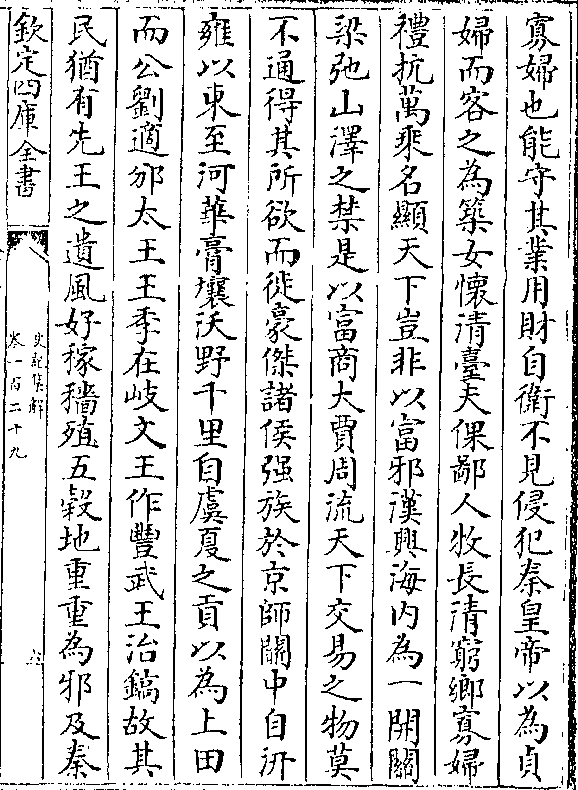 寡婦也能守其業用財自衛不見侵犯秦皇帝以為貞
婦而客之為築女懷清臺夫倮鄙人牧長清窮鄉寡婦
禮抗萬乘名顯天下豈非以富邪漢興海内為一開關
梁弛山澤之禁是以富商大賈周流天下交易之物莫
不通得其所欲而徙豪傑諸侯强族於京師關中自汧
雍以東至河華膏壤沃野千里自虞夏之貢以為上田
而公劉適邠太王王季在岐文王作豐武王治鎬故其
民猶有先王之遺風好稼穡殖五榖地重重為邪及秦
欽定四庫全書
史記集解
卷一百二十九
六